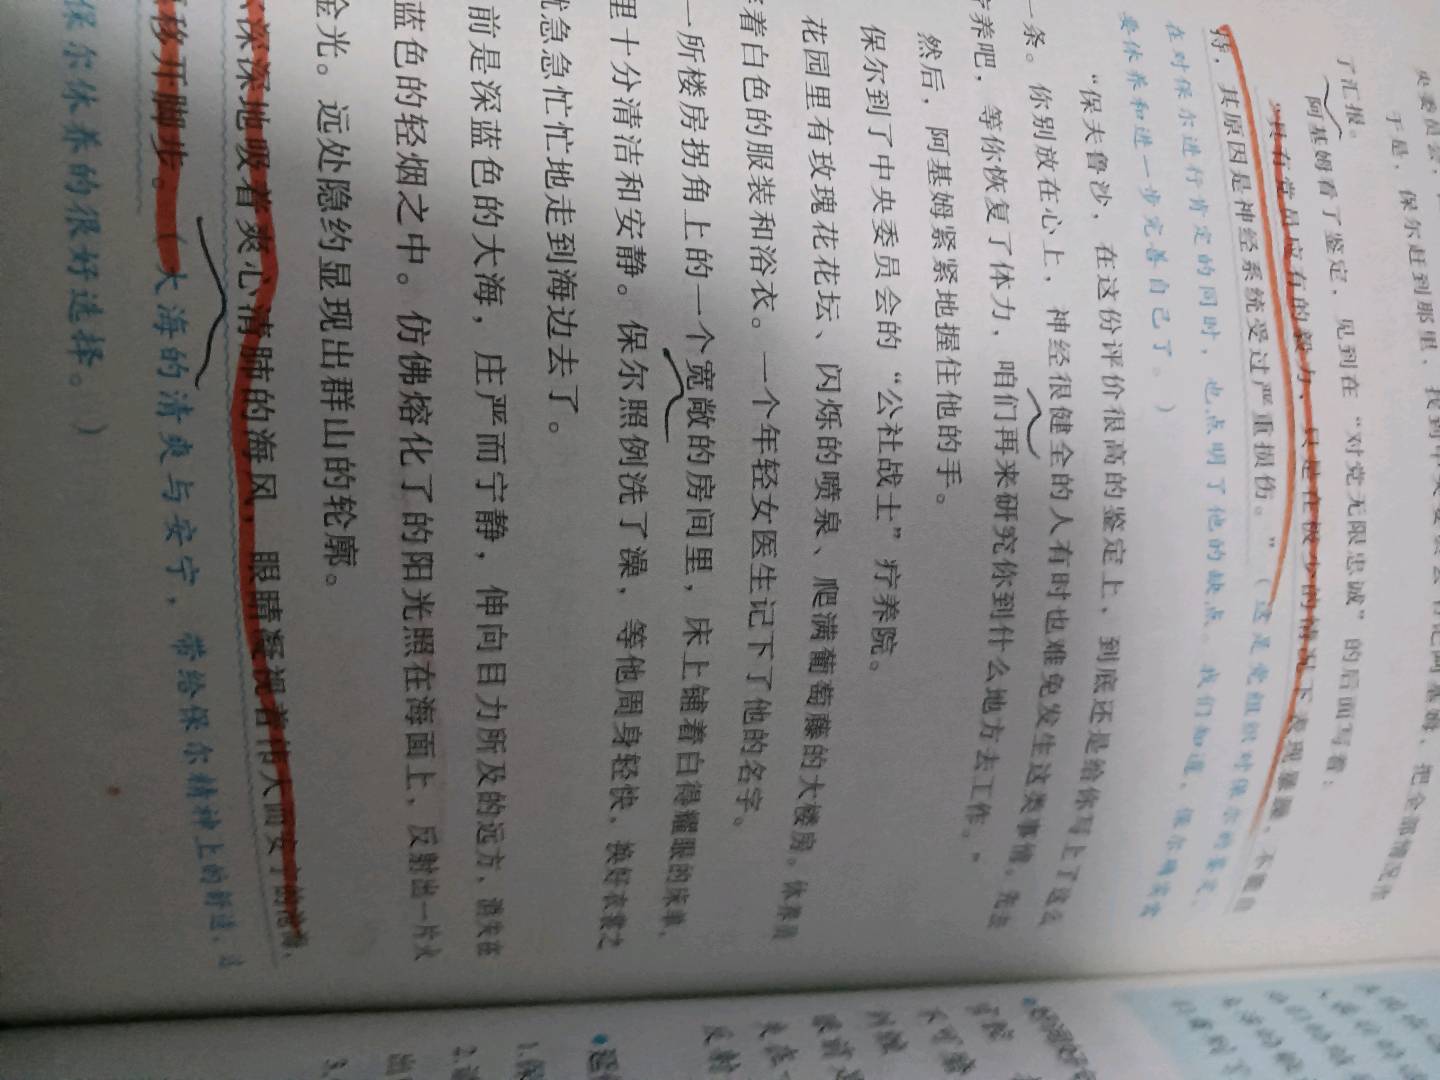 于是，保尔赶到那里，找到中央委员会书记阿基姆，把全部情况作
了汇报。
阿基姆看了鉴定，见到在“对党无限忠诚”的后面写着：
“具有党员应有的毅力，只是在极少的情况下表现暴躁，不能自
持，其原因是神经系统受过严重损伤。”（这是党组织对保尔的鉴定，
在对保尔进行肯定的同时，也点明了他的缺点。我们知道，保尔确实需
要休养和进一步完善自己了。）
“保夫鲁沙，在这份评价很高的鉴定上，到底还是给你写上了这么
一条。你别放在心上，神经很健全的人有时也难免发生这类事情。先去
疗养吧，等你恢复了体力，咱们再来研究你到什么地方去工作。”
然后，阿基姆紧紧地握住他的手。
保尔到了中央委员会的“公社战士”疗养院。
花园里有玫瑰花花坛、闪烁的喷泉、爬满葡萄藤的大楼房。休养员
着白色的服装和浴衣。一个年轻女医生记下了他的名字。
一所楼房拐角上的一个宽敞的房间里，床上铺着白得耀眼的床单，
里十分清洁和安静。保尔照例洗了澡，等他周身轻快，换好衣裳之
就急急忙忙地走到海边去了。
前是深蓝色的大海，庄严而宁静，伸向目力所及的远方，消失在
蓝色的轻烟之中。仿佛熔化了的阳光照在海面上，反射出一片火
金光。远处隐约显现出群山的轮廓。
深深地吸着爽心清肺的海风，眼睛凝视着伟大而安宁的沧海，
移开脚步。（大海的清爽与安宁，带给保尔精神上的舒适，这
保尔休养的很好选择。）
反射
1.保
2.
3.